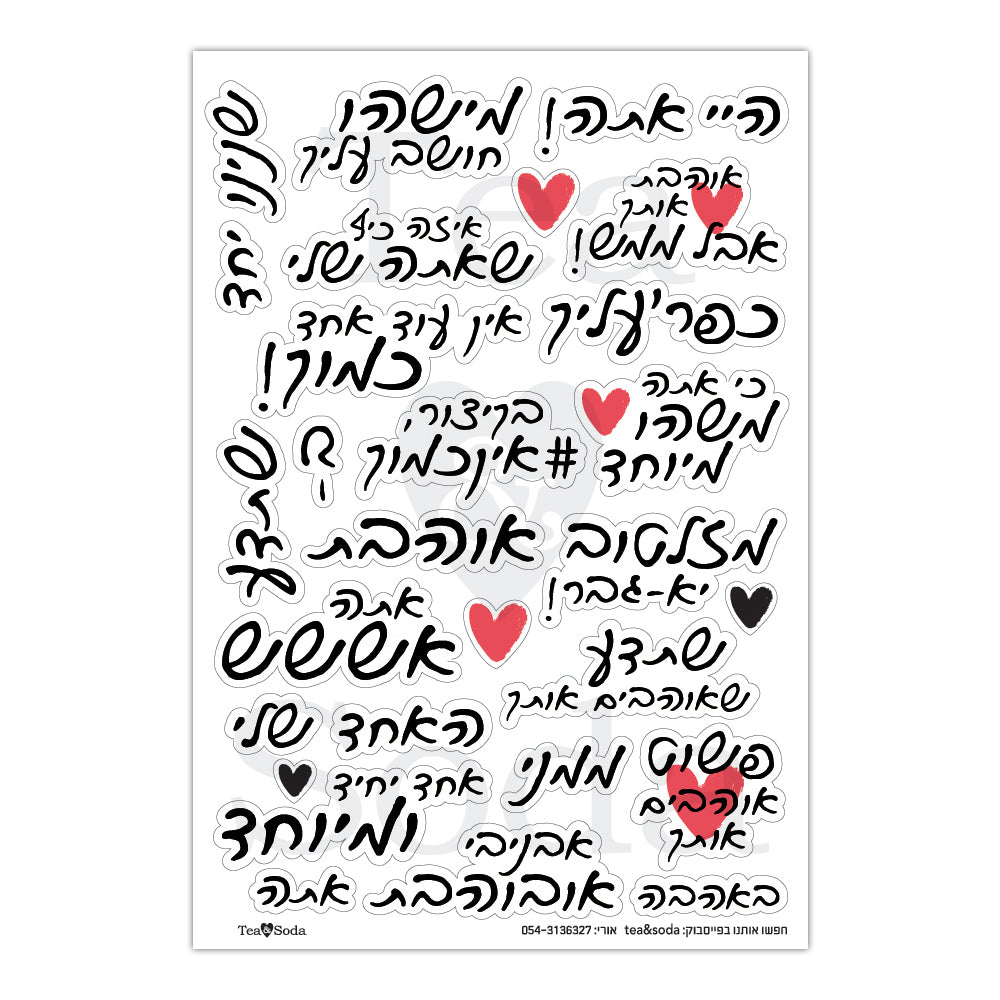 היי אתה!
מישהו
חושב עליך
שנינו יחד
אוהבת
אותך
אבל ממש!
איזה כיף
שאתה שלי
כפרי'עליך
אין עוד אחד
כמוך!
כי אתה
משהו
מיוחד
בקיצור,
#אינכמוך
שתדע
מזלטוב
יא-גבר!
אוהבת
אתה
אשששש
שתדע
שאוהבים אותך
האחד שלי
פשוט
אוהבים
אותך
ממני
אחד יחיד
ומיוחד
אבניבי
אובוהבת
אתה
באהבה
חפשו אותנו בפייסבוק: tea&soda אורי: 054-3136327
Tea&Soda
Tea
&
Soda